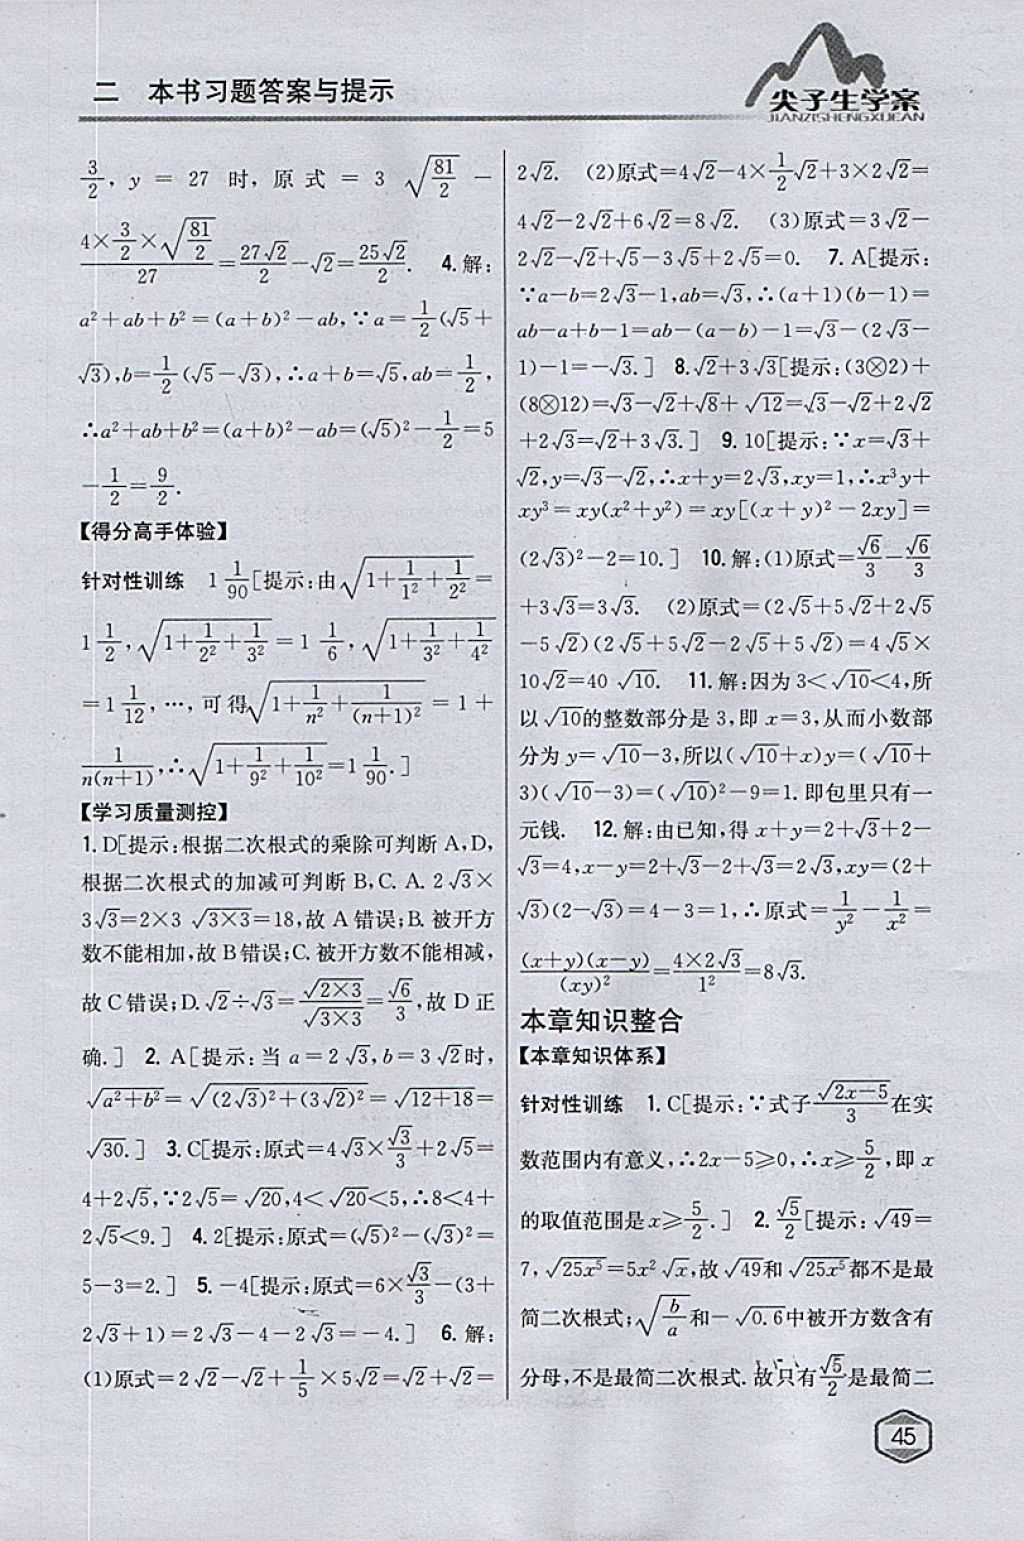 二 本书习题答案与提示
尖子生学案
JIANZISHENGXUEAN
3/2, y = 27 时, 原式 = 3 √(81/2) −
(4×3/2×√(81/2))/27=27√2/2−√2=25√2/2. 4.解:
a²+ab+b²=(a+b)²−ab,∵a=1/2(√5+
√3),b=1/2(√5−√3),∴a+b=√5,ab=1/2,
∴a²+ab+b²=(a+b)²−ab=(√5)²−1/2=5
−1/2=9/2.
【得分高手体验】
针对性训练 1 1/90[提示:由√(1+1/1²+1/2²)=
1 1/2,√(1+1/2²+1/3²)=1 1/6,√(1+1/3²+1/4²)
=1 1/12,…,可得√(1+1/n²+1/(n+1)²)=1+
1/(n(n+1)),∴√(1+1/9²+1/10²)=1 1/90.]
【学习质量测控】
1.D[提示:根据二次根式的乘除可判断A,D,
根据二次根式的加减可判断B,C. A. 2√3×
3√3=2×3 √(3×3)=18,故A错误;B. 被开方
数不能相加,故B错误;C. 被开方数不能相减,
故C错误;D. √2÷√3=√(2×3)/√(3×3)=√6/3,故D正
确.] 2. A[提示:当a=2√3,b=3√2时,
√(a²+b²)=√((2√3)²+(3√2)²)=√(12+18)=
√30.] 3. C[提示:原式=4√3×√3/3+2√5=
4+2√5,∵2√5=√20,4<√20<5,∴8<4+
2√5<9.] 4. 2[提示:原式=(√5)²−(√3)²=
5−3=2.] 5. −4[提示:原式=6×√3/3−(3+
2√3+1)=2√3−4−2√3=−4.] 6. 解:
(1)原式=2√2−√2+1/5×5√2=√2+√2=
2√2. (2)原式=4√2−4×1/2√2+3×2√2=
4√2−2√2+6√2=8√2. (3)原式=3√2−
2√2−√2+√5−3√5+2√5=0. 7. A[提示:
∵a−b=2√3−1,ab=√3,∴(a+1)(b−1)=
ab−a+b−1=ab−(a−b)−1=√3−(2√3−
1)−1=−√3.] 8.√2+3√3[提示:(3⊗2)+
(8⊗12)=√3−√2+√8+√12=√3−√2+2√2
+2√3=√2+3√3.] 9. 10[提示:∵x=√3+
√2,y=√3−√2,∴x+y=2√3,xy=1,∴x³y+
xy³=xy(x²+y²)=xy[(x+y)²−2xy]=
(2√3)²−2=10.] 10. 解:(1)原式=√6/3−√6/3
+3√3=3√3. (2)原式=(2√5+5√2+2√5
−5√2)(2√5+5√2−2√5+5√2)=4√5×
10√2=40√10. 11. 解:因为3<√10<4,所
以√10的整数部分是3,即x=3,从而小数部
分为y=√10−3,所以(√10+x)y=(√10+
3)(√10−3)=(√10)²−9=1. 即包里只有一
元钱. 12. 解:由已知,得x+y=2+√3+2−
√3=4,x−y=2+√3−2+√3=2√3,xy=(2+
√3)(2−√3)=4−3=1,∴原式=1/y²−1/x²=
(x+y)(x−y)/(xy)²=4×2√3/1²=8√3.
本章知识整合
【本章知识体系】
针对性训练 1. C[提示:∵式子√(2x−5)/3在实
数范围内有意义,∴2x−5≥0,∴x≥5/2,即x
的取值范围是x≥5/2.] 2. √5/2[提示:√49=
7,√(25x⁵)=5x²√x,故√49和√(25x⁵)都不是最
简二次根式;√(b/a)和−√0.6中被开方数含有
分母,不是最简二次根式. 故只有√5/2是最简二
45